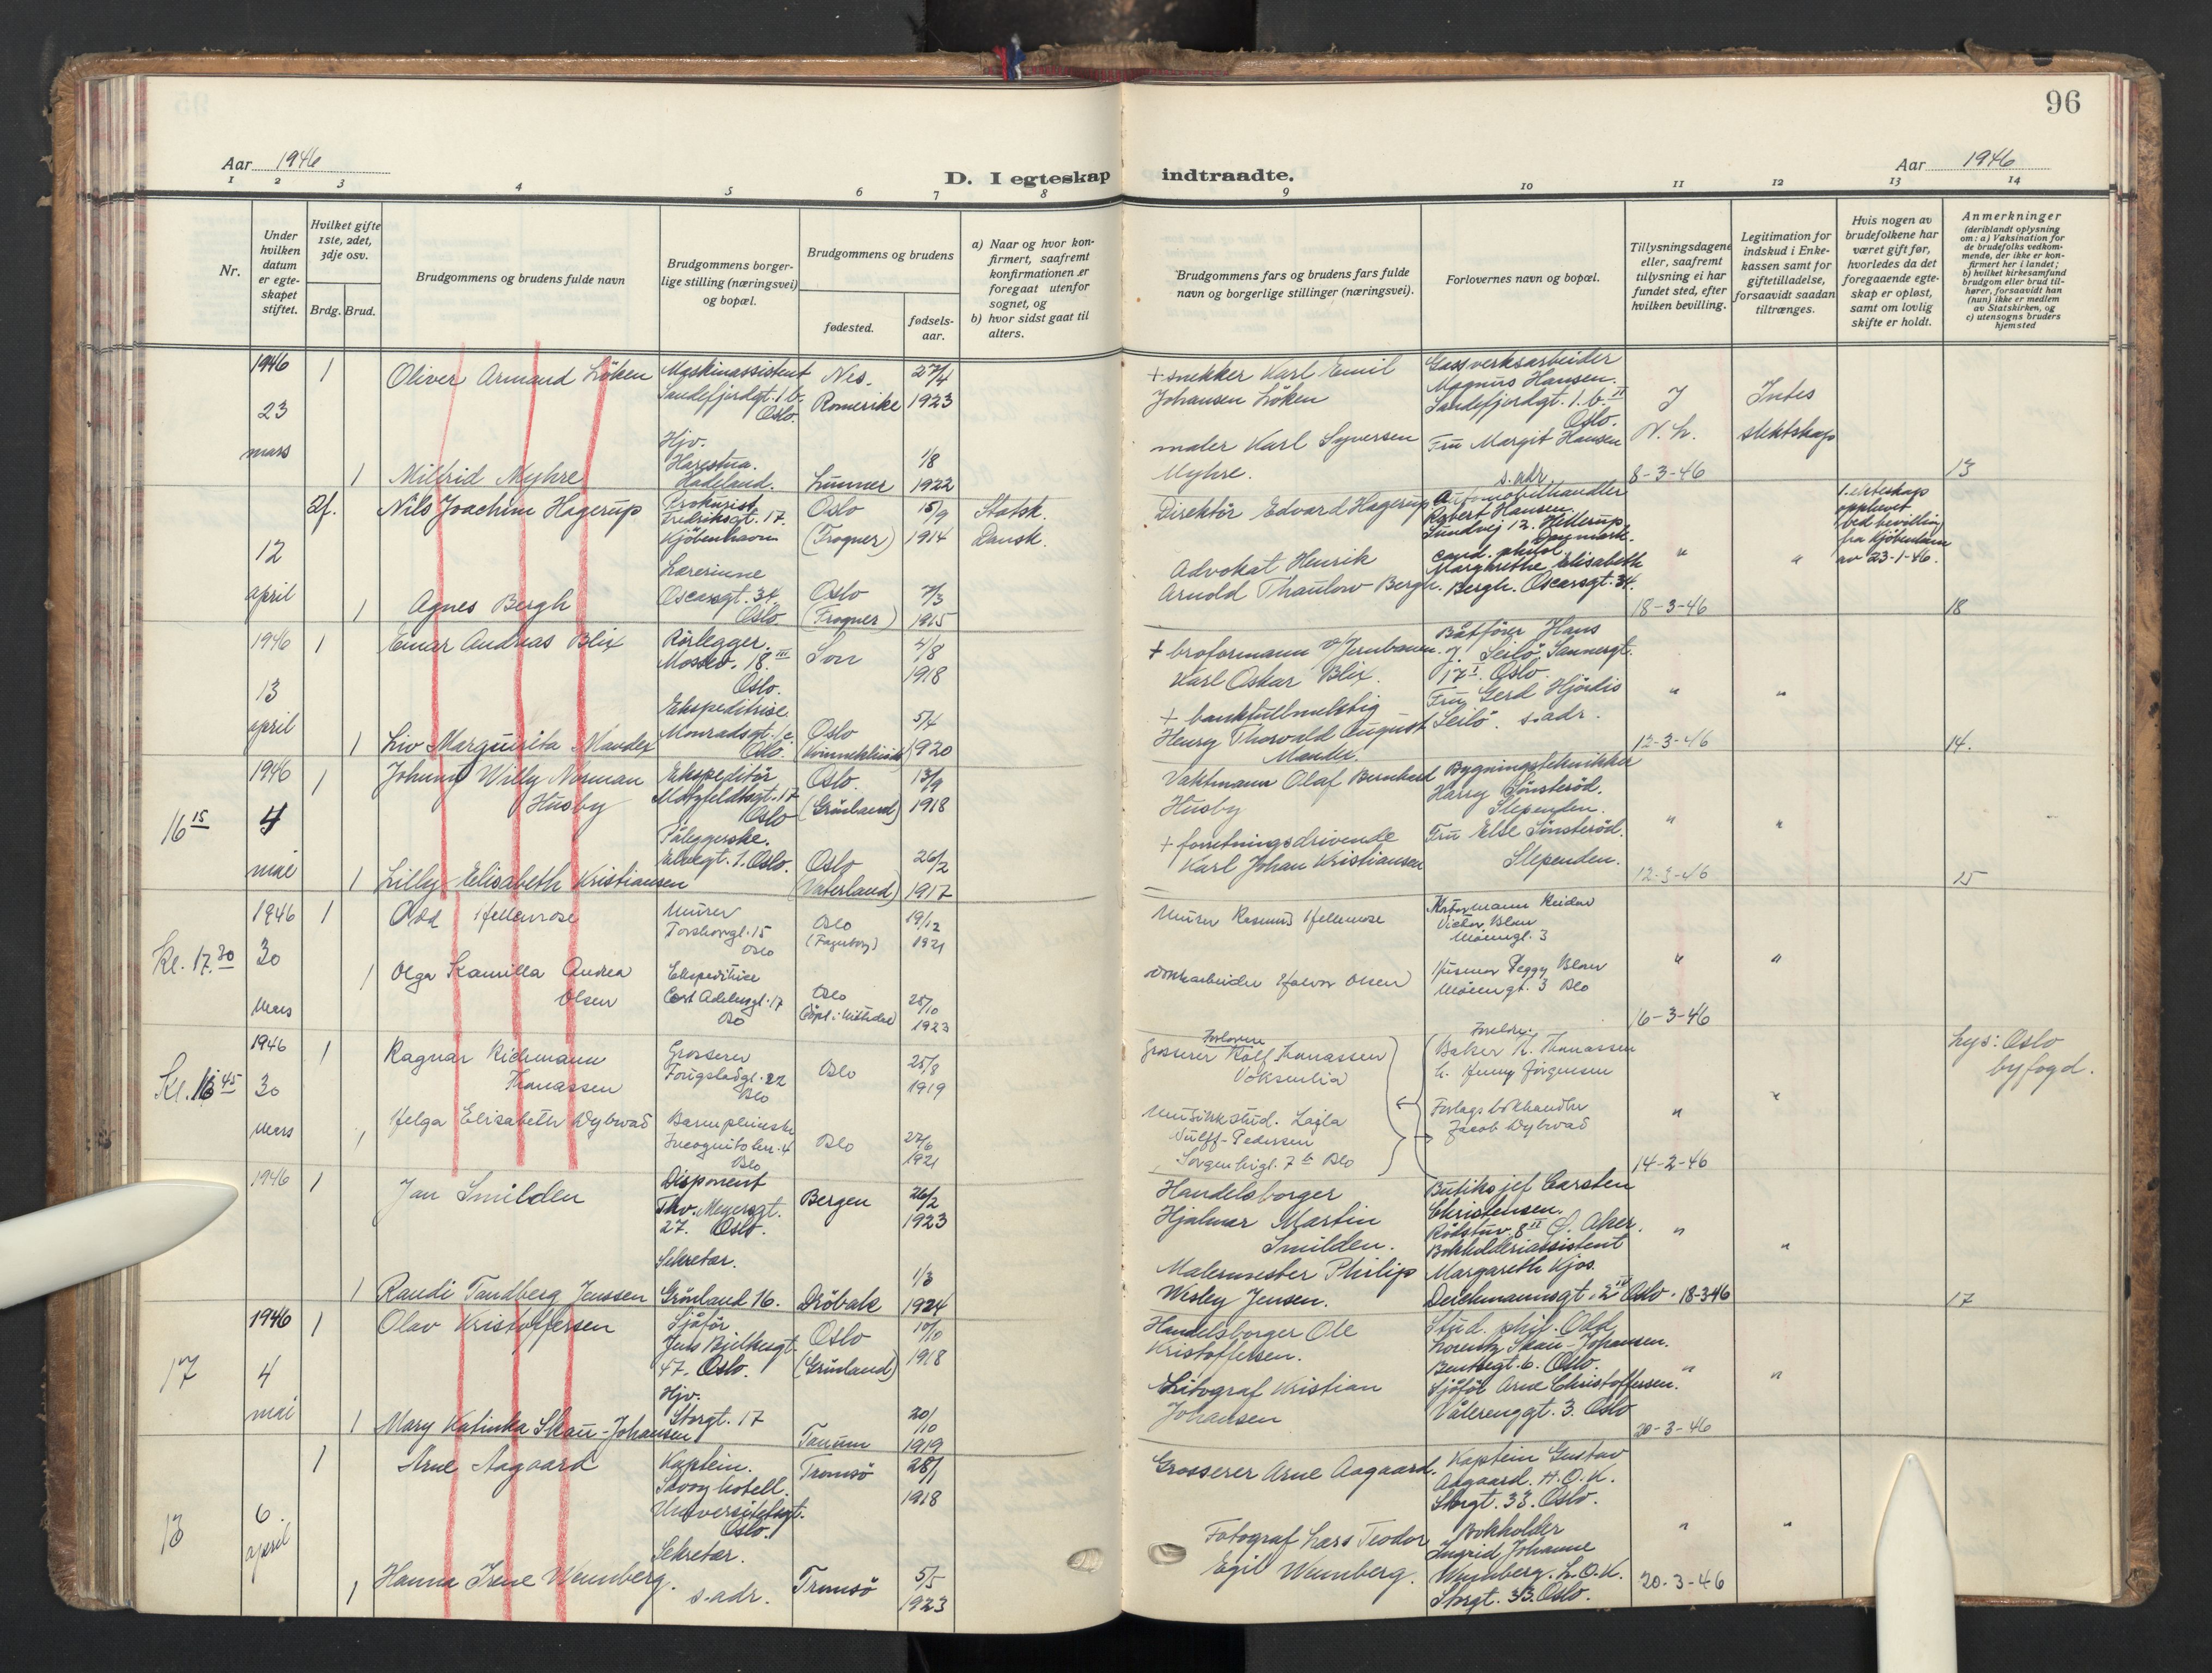 96
Aar 1946
D. I egteskap indtraadte.
Aar 1946
1 2 3 4 5 6 7 8 9 10 11 12 13 14
Nr.
Under hvilken datum er egteskapet stiftet.
Hvilket gifte 1ste, 2det, 3dje osv.
Brdg. Brud.
Brudgommens og brudens fulde navn
Brudgommens borgerlige stilling (næringsvei) og bopæl.
Brudgommens og brudens
fødested.
fødselsaar.
a) Naar og hvor konfirmert, saafremt konfirmationen er foregaat utenfor sognet, og
b) hvor sidst gaat til alters.
Brudgommens fars og brudens fars fulde navn og borgerlige stillinger (næringsvei).
Forlovernes navn og bopæl.
Tillysningsdagene eller, saafremt tillysning ei har fundet sted, efter hvilken bevilling.
Legitimation for indskud i Enkekassen samt for giftetilladelse, forsaavidt saadan tiltrænges.
Hvis nogen av brudefolkene har været gift før, hvorledes da det foregaaende egteskap er opløst, samt om lovlig skifte er holdt.
Anmerkninger
(deriblandt oplysning om: a) Vaksination for de brudefolks vedkommende, der ikke er konfirmert her i landet;
b) hvilket kirkesamfund brudgom eller brud tilhører, forsaavidt han (hun) ikke er medlem av Statskirken, og
c) utensogns bruders hjemsted
1946
23
mars
1
Oliver Armand Löken
Maskinassistent
Sandefjordgt. 1 b.
Oslo.
Nes.
Romerike
27/4
1923
+ snekker Karl Emil
Johansen Löken
Gassverksarbeider
Magnus Hansen.
Sandefjordgt. 1. b. II
Oslo.
J
N. h.
Intes
slektskap
1
Milfrid Myhre
Hjv.
Harestua.
Hadeland.
Lunner
1/8
1922
maler Karl Syversen
Myhre.
Fru Margit Hansen
s. adr
8-3-46
13
2f.
12
april
Nils Joachim Hagerup
Prokurist
Fredriksgt. 17.
Kjöbenhavn
Oslo
(Frogner)
15/9
1914
Statsk.
Dansk.
Direktör Edvard Hagerup
Automobilhandler
Robert Hansen.
Sundvej 12. Hellerup
Danmark.
1. ekteskap
opplöst
ved bevilling
fra Kjöbenhavn
av 23-1-46.
1
Agnes Bergh
Lærerinne
Oscarsgt. 34
Oslo.
Oslo
(Frogner)
7/3
1915
Advokat Henrik
Arnold Thaulow Bergh.
cand. philol.
Margrethe Elisabeth
Bergh. Oscarsgt. 34.
18-3-46
18
1946
13
april
1
Einar Andreas Blix
Rörlegger.
Mossev. 18. III
Oslo.
Son
4/8
1918
+ broformann v/Jernbanen.
Karl Oskar Blix.
Båtförer Hans
J. Seilö. Sannergt.
17 I. Oslo.
1
Liv Marguerita Mandex
Ekspeditrise.
Monradsgt. 1c
Oslo.
Oslo
(Kvinneklinikk)
5/4
1920
+ bankfullmektig
Henry Thorvald August
Mandex.
Fru Gerd Hjördis
Seilö. s. adr.
12-3-46
14.
16 15
1946
4
mai
1
Johnny Willy Norman
Husby
Ekspeditör
Motzfeldtsgt. 17
Oslo
Oslo.
(Grönland)
13/9
1918
Vaktmann Olaf Bernhard
Husby
Bygningstekniker
Harry Sönsteröd.
Slependen.
1
Lilly Elisabeth Kristiansen
Påleggerske.
Elvegt. 1. Oslo.
Oslo
(Vaterland)
26/2
1917
+ forretningsdrivende
Karl Johan Kristiansen
Fru Else Sönsteröd.
Slependen.
12-3-46
15
Kl. 17.30
1946
30
Mars
1
Odd Hellemose
Murer
Torshovgt. 15
Oslo
Oslo
(Fagerborg)
19/12
1921
Murer Rasmus Hellemose
Victor Blom
3
1
Olga Kamilla Andrea
Olsen
Ekspeditrice
Cort Adelersgt. 17
Oslo
Oslo
25/10
1923
Halvor Olsen
Husmor Peggy Blom
3 Oslo
16-3-46
Kl. 16 45
1946
30
Mars
1
Ragnar Richmann
Thomassen
Grosserer
22
Oslo
Oslo
25/8
1919
Forlovere
Grosserer Rolf Thomassen
Voksenlia
Foreldre.
Baker K. Thomassen
h. Jenny Jörgensen
Lys: Oslo
byfogd.
1
Helga Elisabeth Dybwad
Barnepleierske
Incognitoterr. 4
Oslo
Oslo
27/6
1921
Musikkstud. Lajla
Wulff-Pedersen
Sorgenfrigt. 7 b Oslo
Forlagsbokhandler
Jacob Dybwad
14-2-46
1946
1
Jan Smilden
Disponent
Thv. Meyersgt.
27. Oslo.
Bergen
26/2
1923
Handelsborger
Hjalmar Martin
Smilden.
Butiksjef Carsten
Christensen.
Rödstuv. 8 II Ö. Aker.
1
Randi Tandberg Jenssen
Sekretær.
Grönland 16.
Dröbak
1/3
1924
Malermester Philip
Wesley Jensen.
Bokholderiassistent
Margareth Kjos.
Deichmannsgt. 2 IV Oslo.
18-3-46
17
17
1946
4
mai
1
Olav Kristoffersen
Sjåför
Jens Bjelkesgt.
47. Oslo.
Oslo
(Grönland)
10/10
1918
Handelsborger Ole
Kristoffersen.
Stud. phil. Odd
Lorentz Skau-Johansen.
Bentsegt. 6. Oslo.
1
Mary Katinka Skau-Johansen
Hjv.
Storgt. 17
Tanum
20/10
1919
Litograf Kristian
Johansen
Sjåför Arne Christoffersen.
Vålerenggt. 3. Oslo
20-3-46
13
6.
april
1
Arne Aagaard
Kaptein.
Savoy hotell.
Universitetsgt.
Oslo.
Tromsö
28/1
1918
Grosserer Arne Aagaard.
Kaptein Gustav
Aagaard. H.O.K.
Storgt. 33. Oslo.
1
Hanna Irene Wennberg.
Sekretær.
s. adr.
Tromsö
5/5
1923
Fotograf Lars Teodor
Egil Wennberg.
Bokholder
Ingrid Johanne
Wennberg. L.O.K.
Storgt. 33. Oslo.
20-3-46